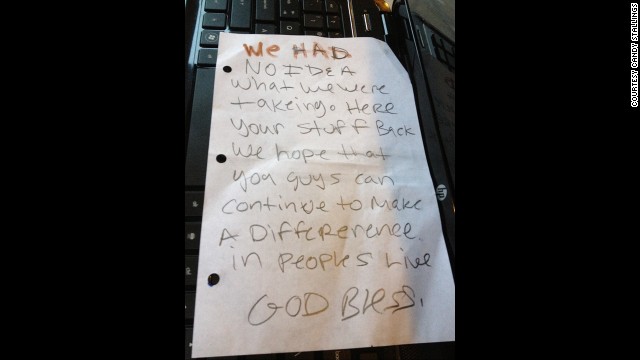 We HAD
NO IDEA
what we were
takeing. Here
your stuff Back
we hope that
you guys can
continue to Make
A Difference
in peoples Live
GOD Bless.
hp
COURTESY CANDY STALLINGS